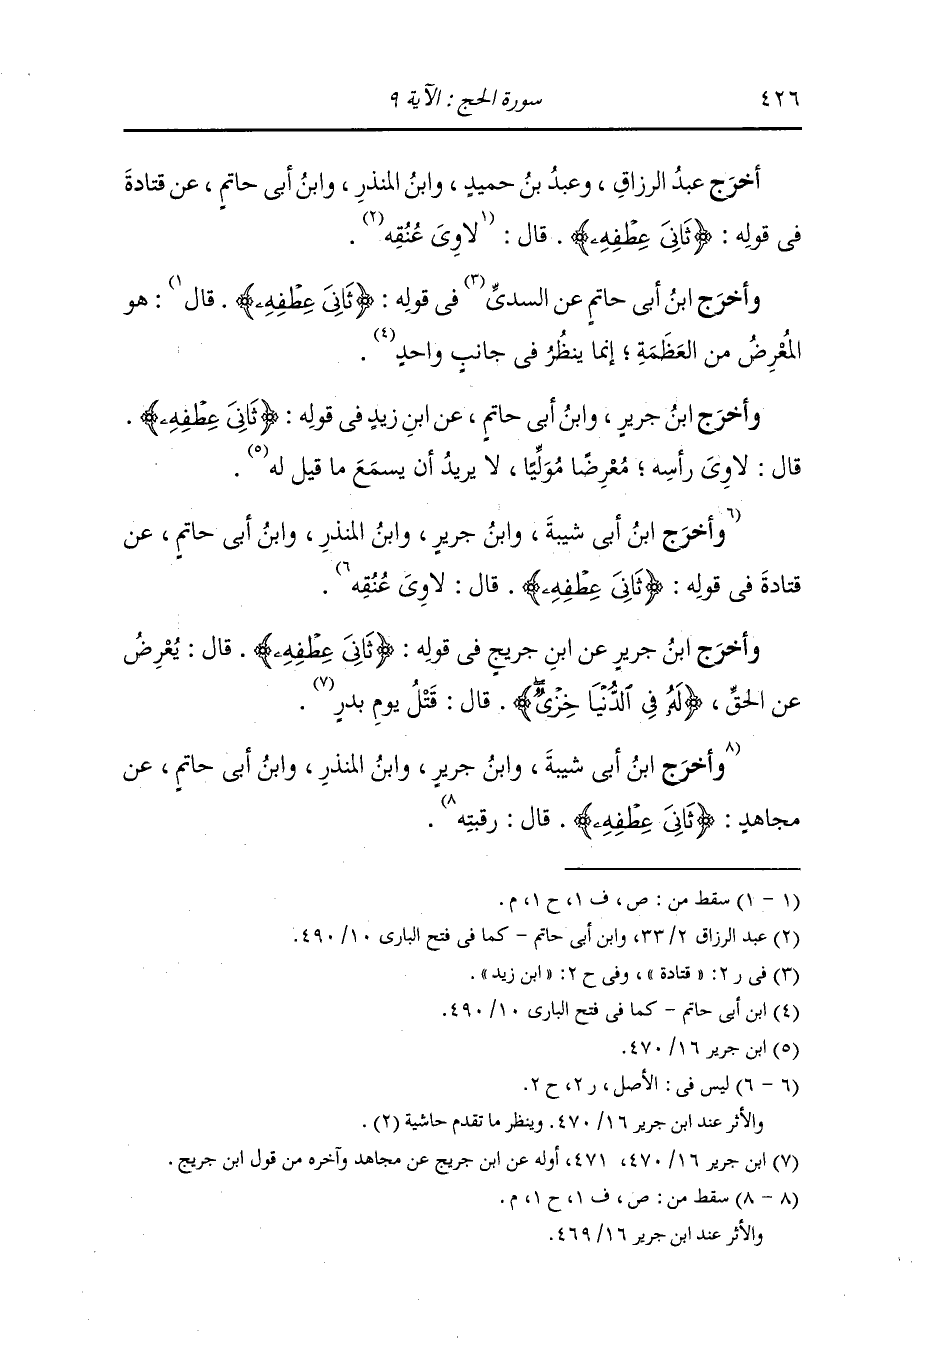 ٤٢٦ سورة الحج : الآية ٩
أخرَج عبدُ الرزاقِ ، وعبدُ بنُ حميدٍ ، وابنُ المنذرِ ، وابنُ أبى حاتمٍ ، عن قتادةَ
فى قولِه : ﴿ثَانِىَ عِطْفِهِۦ﴾ . قال : (١لاوِىَ عُنُقِه(٢) .
وأخرَج ابنُ أبى حاتمٍ عن السدىِّ(٣) فى قولِه : ﴿ثَانِىَ عِطْفِهِۦ﴾ . قال١) : هو
المُعْرِضُ من العَظَمَةِ ؛ إنما ينظُرُ فى جانبٍ واحدٍ(٤) .
وأخرَج ابنُ جريرٍ ، وابنُ أبى حاتمٍ ، عن ابنِ زيدٍ فى قولِه : ﴿ثَانِىَ عِطْفِهِۦ﴾ .
قال : لاوِىَ رأسِه ؛ مُعْرِضًا مُوَلِّيًا ، لا يريدُ أن يسمَعَ ما قيل له(٥) .
(٦وأخرَج ابنُ أبى شيبةَ ، وابنُ جريرٍ ، وابنُ المنذرِ ، وابنُ أبى حاتمٍ ، عن
قتادةَ فى قولِه : ﴿ثَانِىَ عِطْفِهِۦ﴾ . قال : لاوِىَ عُنُقِه٦) .
وأخرَج ابنُ جريرٍ عن ابنِ جريجٍ فى قولِه : ﴿ثَانِىَ عِطْفِهِۦ﴾ . قال : يُعْرِضُ
عن الحقِّ ، ﴿لَهُۥ فِى ٱلدُّنْيَا خِزْىٌۖ﴾ . قال : قَتْلُ يومِ بدرٍ(٧) .
(٨وأخرَج ابنُ أبى شيبةَ ، وابنُ جريرٍ ، وابنُ المنذرِ ، وابنُ أبى حاتمٍ ، عن
مجاهدٍ : ﴿ثَانِىَ عِطْفِهِۦ﴾ . قال : رقبتِه٨) .
(١ - ١) سقط من : ص ، ف ١، ح ١، م .
(٢) عبد الرزاق ٢/ ٣٣، وابن أبى حاتم - كما فى فتح البارى ١٠/ ٤٩٠.
(٣) فى ر ٢: « قتادة » ، وفى ح ٢: « ابن زيد» .
(٤) ابن أبى حاتم - كما فى فتح البارى ١٠/ ٤٩٠.
(٥) ابن جرير ١٦/ ٤٧٠.
(٦ - ٦) ليس فى : الأصل ، ر ٢، ح ٢.
والأثر عند ابن جرير ١٦/ ٤٧٠. وينظر ما تقدم حاشية (٢) .
(٧) ابن جرير ١٦/ ٤٧٠، ٤٧١، أوله عن ابن جريج عن مجاهد وآخره من قول ابن جريج .
(٨ - ٨) سقط من : ص ، ف ١، ح ١، م .
والأثر عند ابن جرير ١٦/ ٤٦٩.